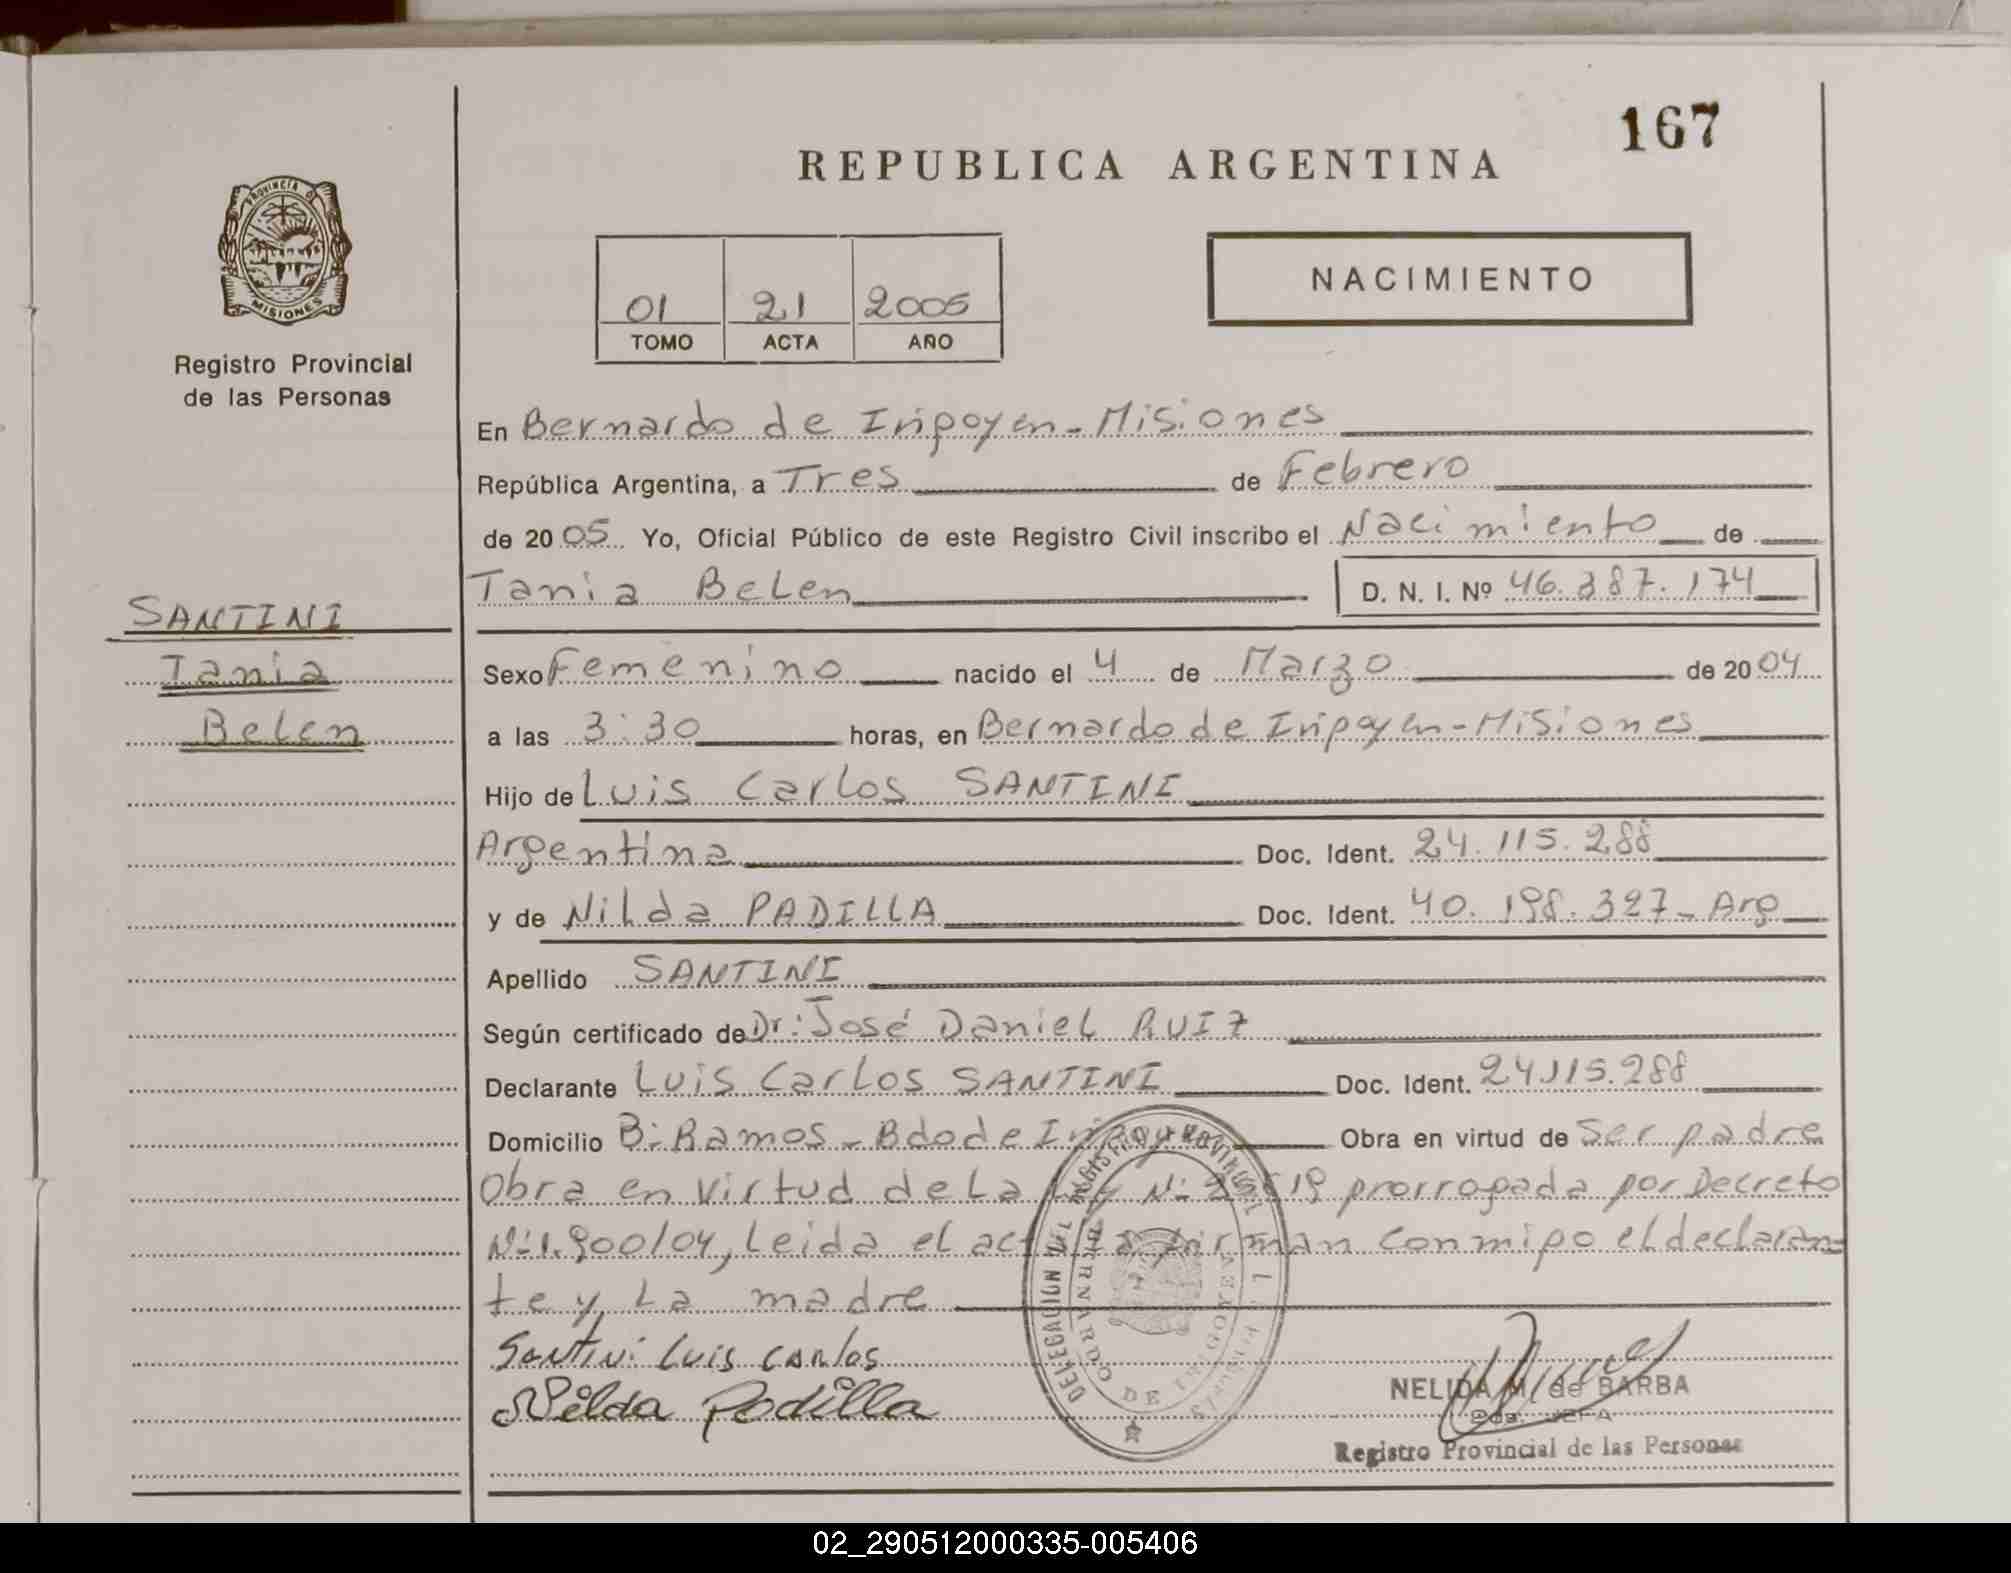 167
REPUBLICA ARGENTINA
PROVINCIA D
MISIONES
Registro Provincial
de las Personas
01 21 2005
TOMO ACTA AÑO
NACIMIENTO
En Bernardo de Irigoyen - Misiones
República Argentina, a Tres de Febrero
de 2005 Yo, Oficial Público de este Registro Civil inscribo el Nacimiento de
Tania Belen D. N. I. Nº 46.387.174
SANTINI
Tania
Belen
Sexo Femenino nacido el 4 de Marzo de 2004
a las 3:30 horas, en Bernardo de Irigoyen - Misiones
Hijo de Luis Carlos SANTINI
Argentina Doc. Ident. 24.115.288
y de Nilda PADILLA Doc. Ident. 40.198.327 - Arg
Apellido SANTINI
Según certificado de Dr: José Daniel RUIZ
Declarante Luis Carlos SANTINI Doc. Ident. 24.115.288
Domicilio B: Ramos - Bdo de Obra en virtud de Ser padre
Obra en virtud de La Ley N: prorrogada por Decreto
N: 1.900/04, Leida el acta La firman conmigo el declaran-
te y La madre
Santini Luis Carlos
Nilda Padilla
DELEGACION DEL REGISTRO PROVINCIAL DE L
BERNARDO DE IRIGOYEN
NELIDA M. de BARBA
JEFA
Registro Provincial de las Personas
02_290512000335-005406